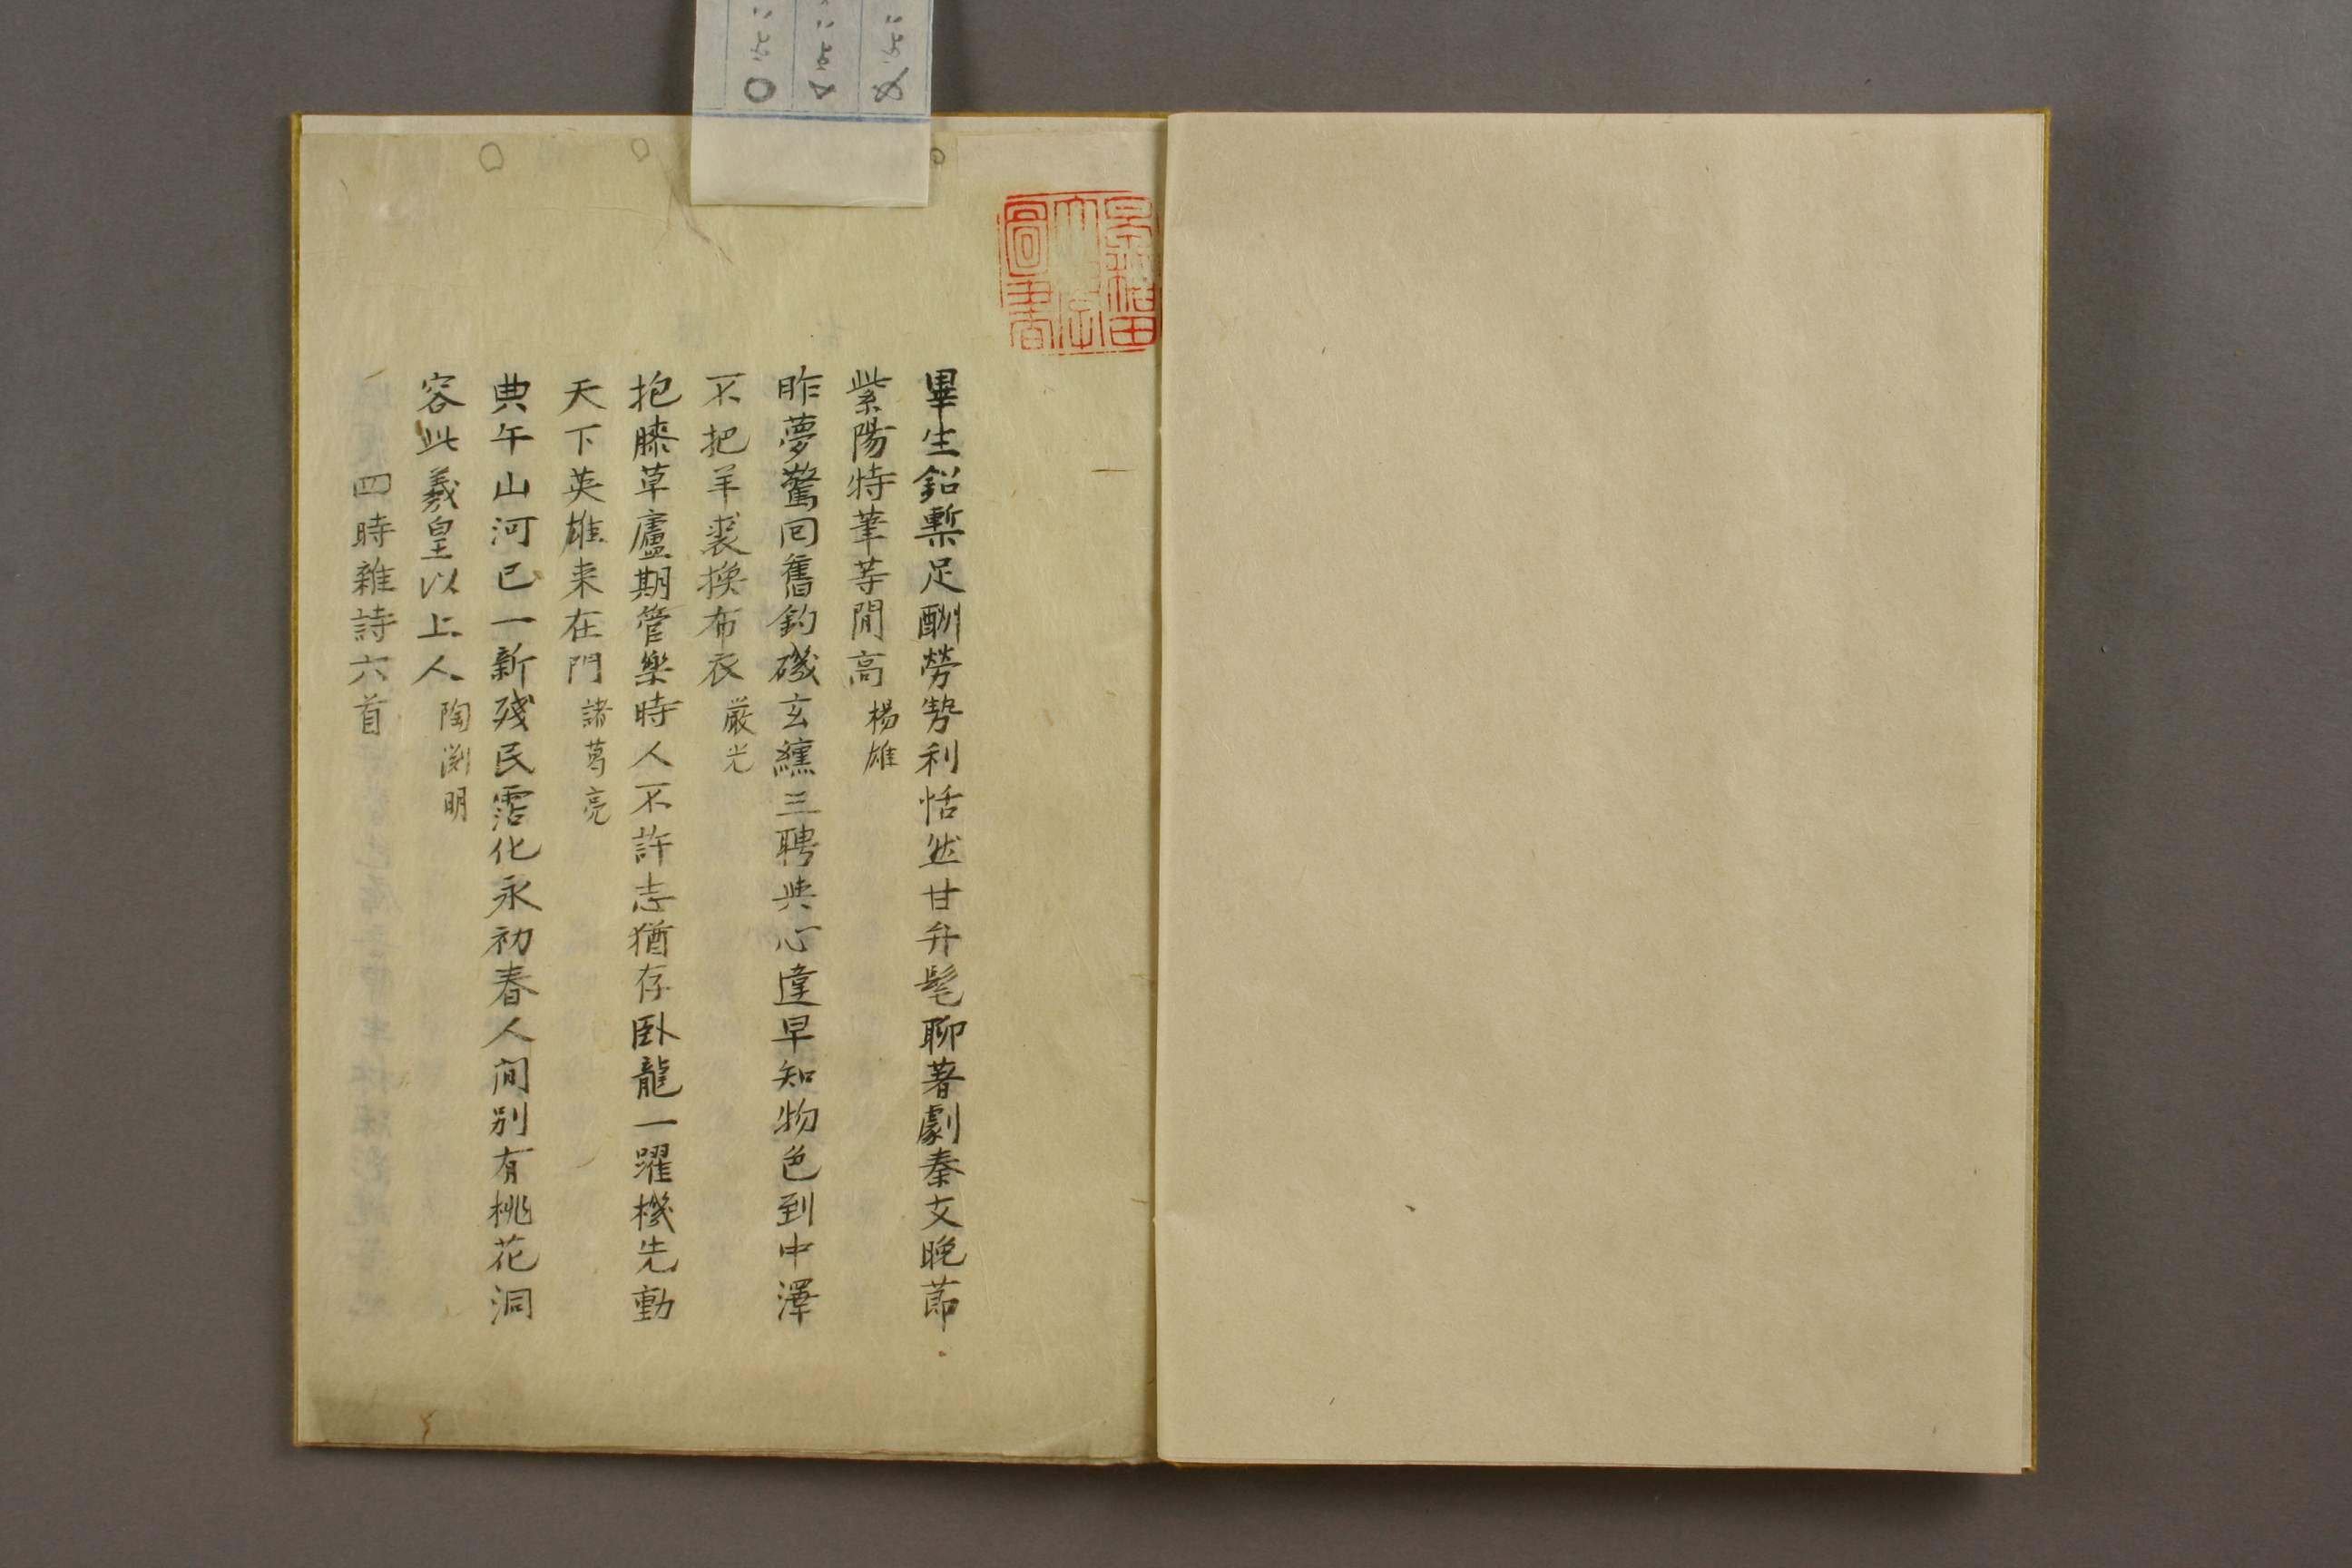 畢生鉛槧足酬勞勢利恬然甘弁髦聊著劇秦文晩莭
紫陽特筆等閒高 楊雄
昨夢驚回舊釣磯玄纁三聘与心違早知物色到中澤
不把羊裘換布衣 厳光
抱膝草廬期管樂時人不許志猶存臥龍一躍機先動
天下英雄来在門 諸葛亮
典午山河已一新殘民霑化永初春人间別有桃花洞
容此羲皇以上人 陶渕明
四時雜詩六首